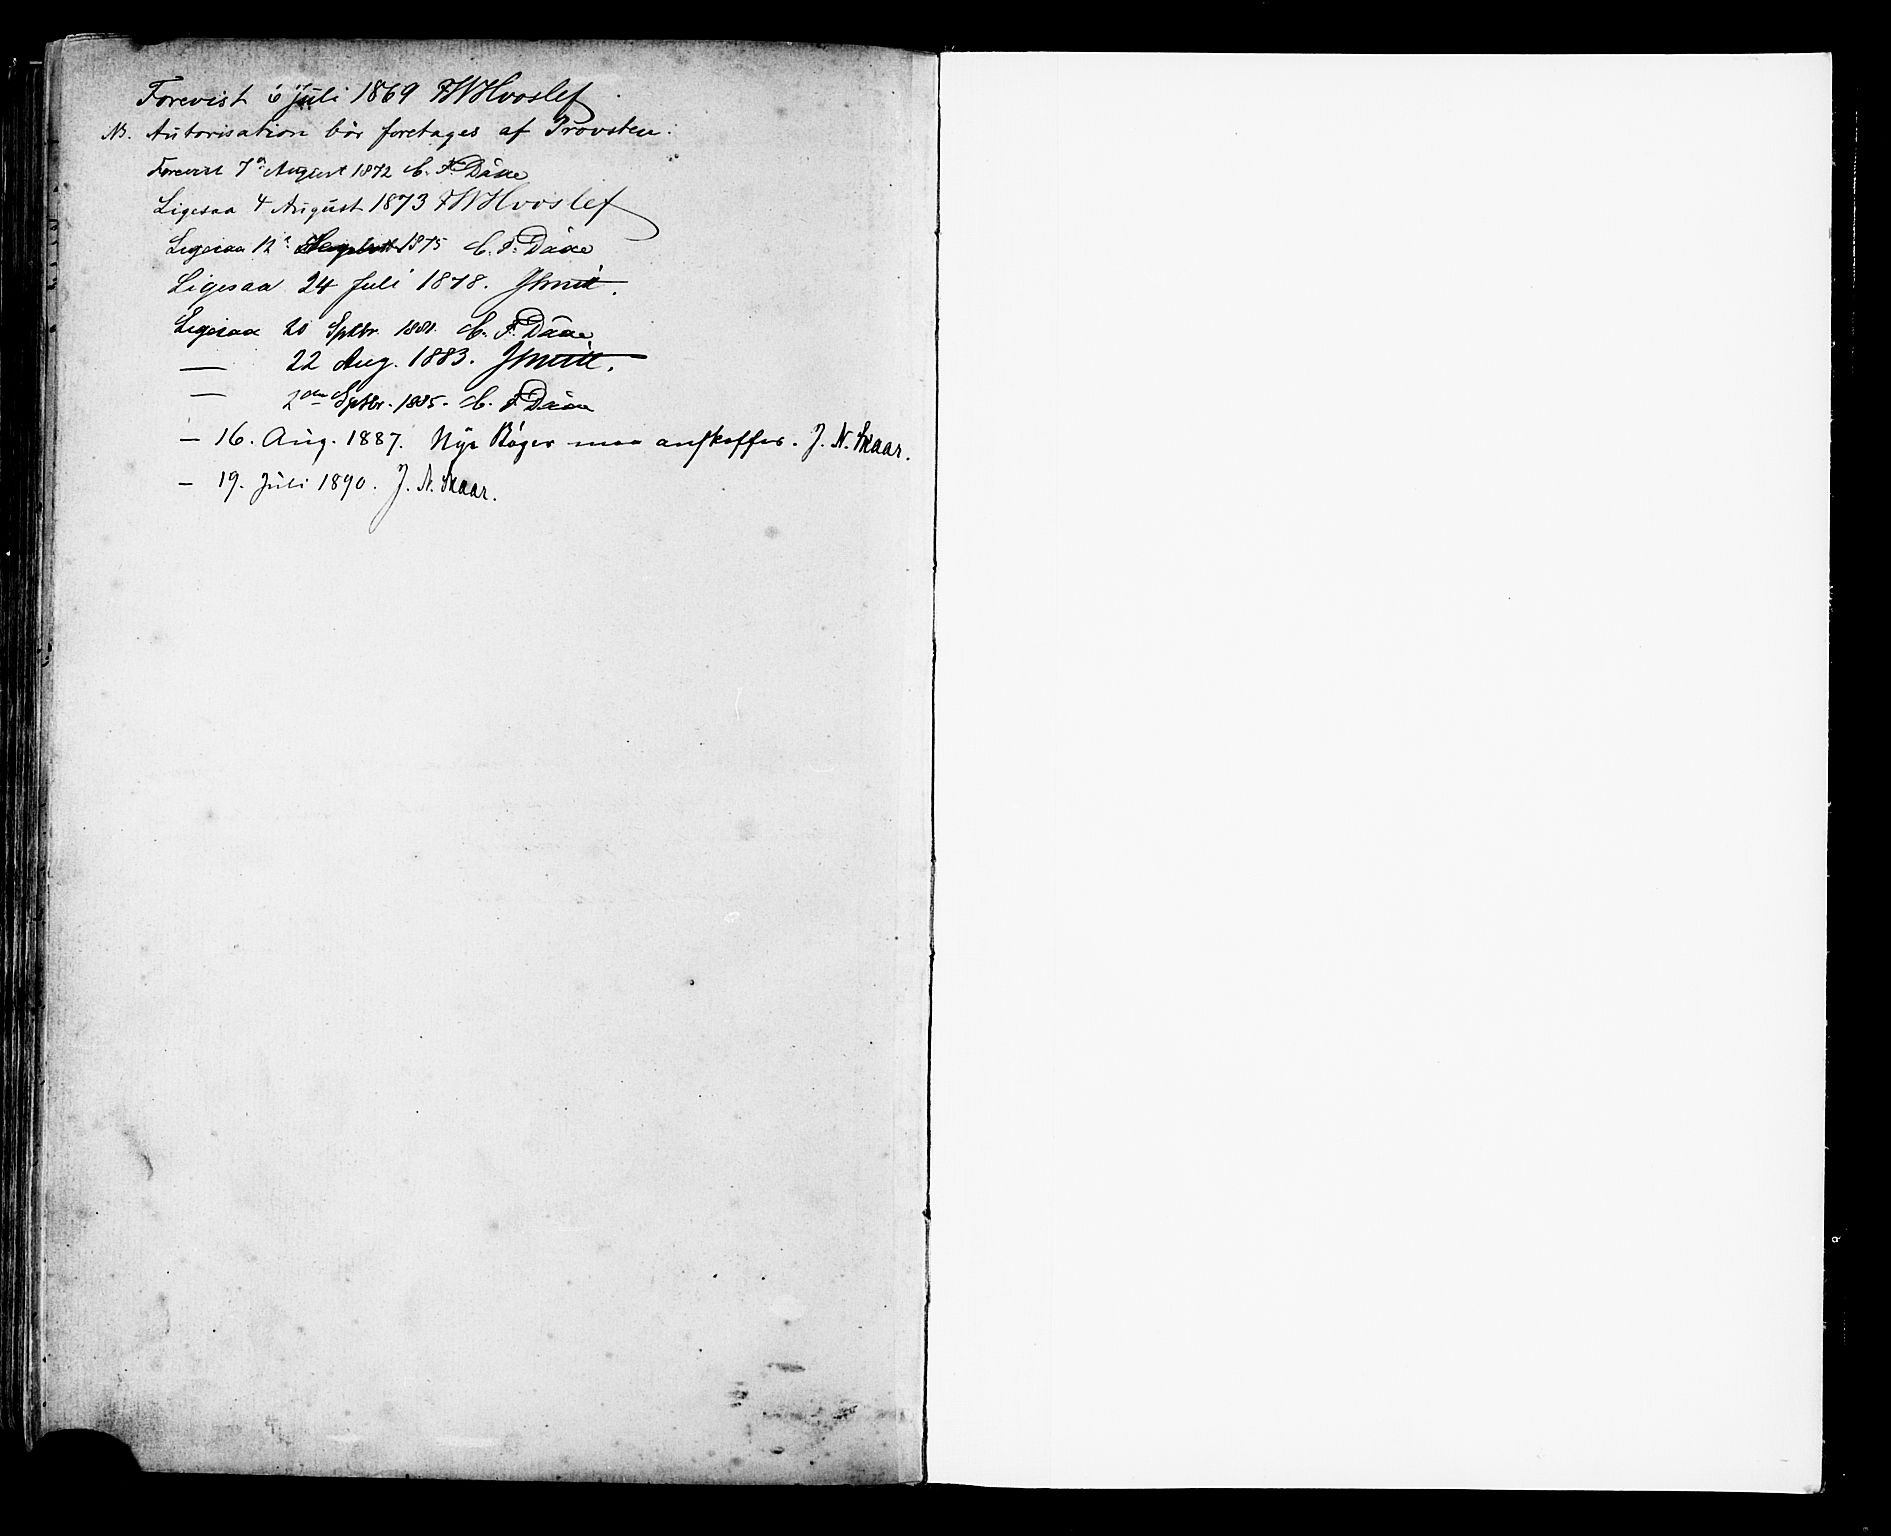 Forevist 6 Juli 1869 FWHvoslef
NB. Autorisation bör foretages af Provsten.
Forevist 7de August 1872 C. F. Daae
Ligesaa 4 August 1873 FWHvoslef
Ligesaa 12te 1875 C. F. Daae
Ligesaa 24 Juli 1878. JSmitt.
Ligesaa 20 Sptbr. C. F. Daae
— 22 Aug. 1883. JSmitt.
— 2den Sptbr. 1885. C. F. Daae
— 16. Aug. 1887. Nye Bøger maa anskaffes. J. N. Skaar.
— 19. Juli 1890. J. N. Skaar.